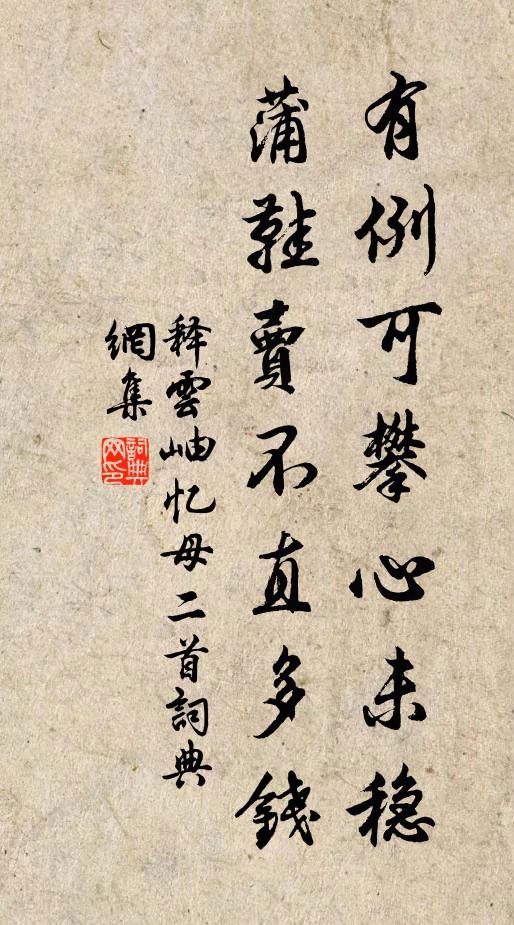 有例可攀心未稳
蒲鞋賣不直多錢
释雲岫忆母二首詞典
網集
詞典
网印